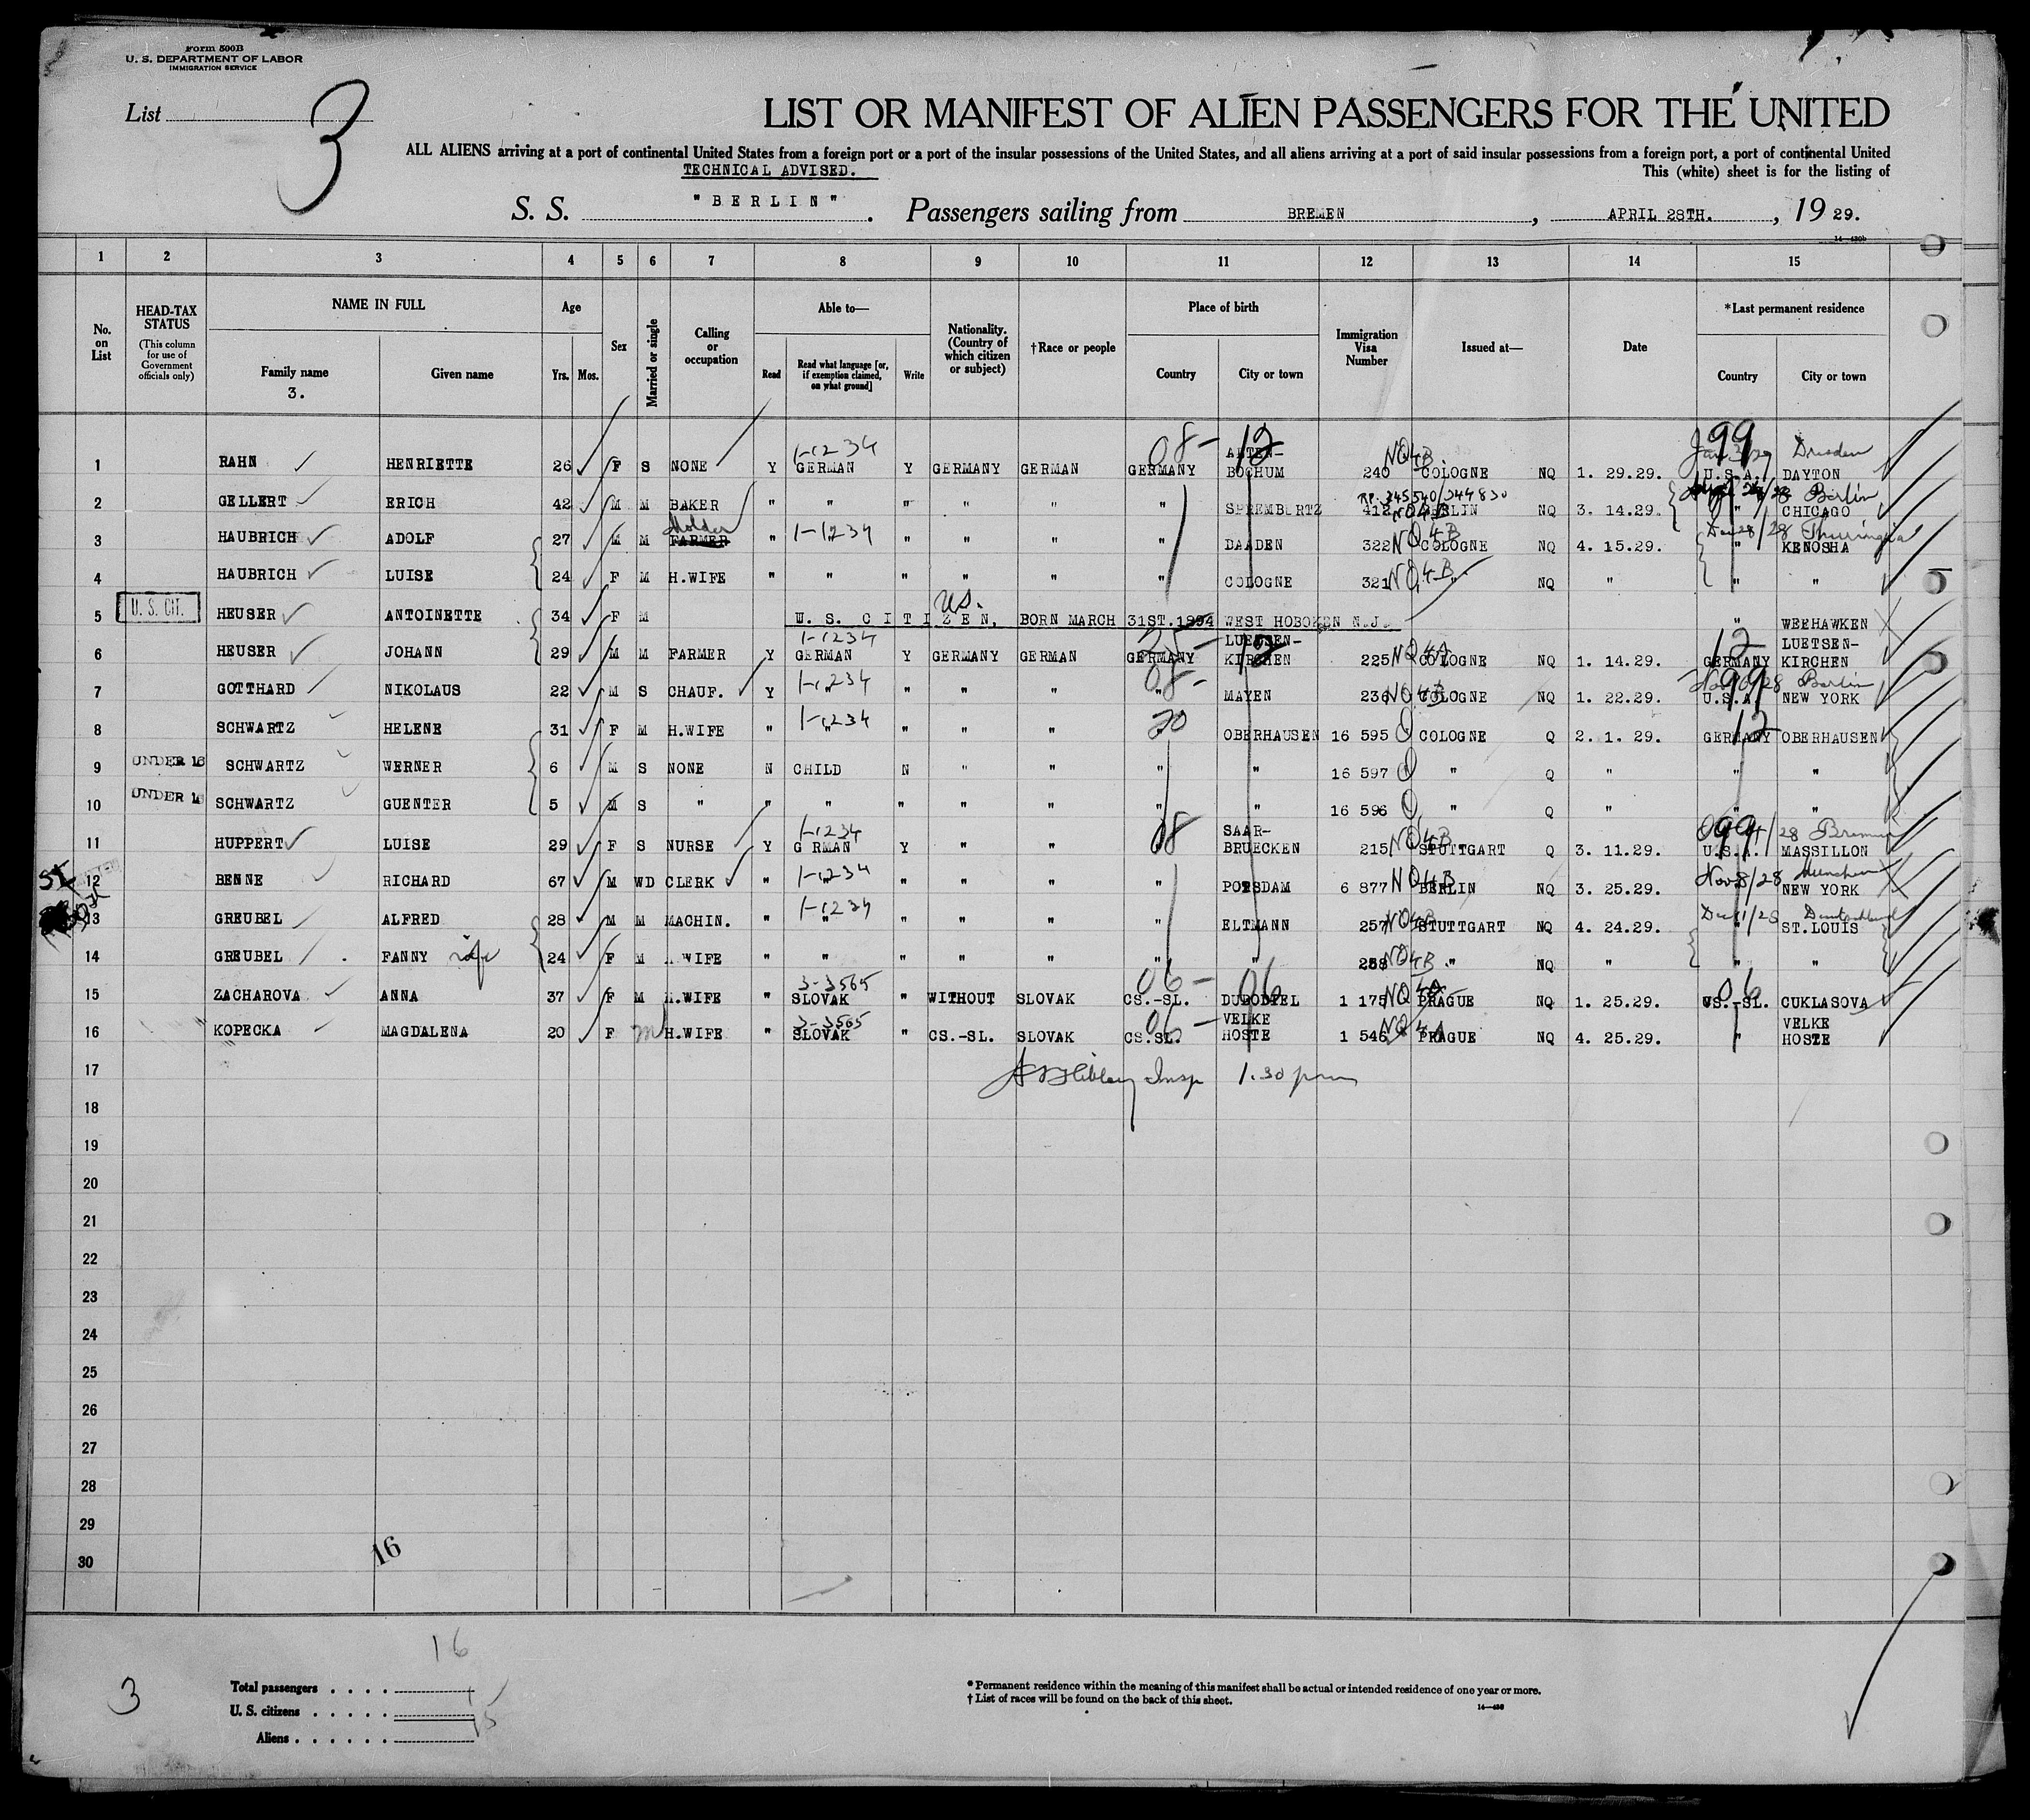 Form 500B
U. S. DEPARTMENT OF LABOR
IMMIGRATION SERVICE
List
3
LIST OR MANIFEST OF ALIEN PASSENGERS FOR THE UNITED
ALL ALIENS arriving at a port of continental United States from a foreign port or a port of the insular possessions of the United States, and all aliens arriving at a port of said insular possessions from a foreign port, a port of continental United
TECHNICAL ADVISED.
This (white) sheet is for the listing of
S. S. "BERLIN". Passengers sailing from BREMEN, APRIL 28TH., 1929.
14—430b
1 2 3 4 5 6 7 8 9 10 11 12 13 14 15
No. on List
HEAD-TAX STATUS (This column for use of Government officials only)
NAME IN FULL
Family name
3.
Given name
Age
Yrs. Mos.
Sex
Married or single
Calling or occupation
Able to—
Read
Read what language [or, if exemption claimed, on what ground]
Write
Nationality. (Country of which citizen or subject)
†Race or people
Place of birth
Country
City or town
Immigration Visa Number
Issued at—
Date
*Last permanent residence
Country
City or town
1-1234 08- 12 ALTEN- NQ4B 99 Dresden
1 RAHN HENRIETTE 26 F S NONE Y GERMAN Y GERMANY GERMAN GERMANY BOCHUM 240 COLOGNE NQ 1. 29.29. U.S.A. DAYTON
RP. 345540/344830 Berlin
2 GELLERT ERICH 42 M M BAKER " " " " " " SPREMBERTZ 412 BERLIN NQ 3. 14.29. " CHICAGO
Molder 1-1234 NQ4B Dec 28/28 Thuringia
3 HAUBRICH ADOLF 27 M M FARMER " " " " " DAADEN 322 COLOGNE NQ 4. 15.29. " KENOSHA
4 HAUBRICH LUISE 24 F M H.WIFE " " " " " " COLOGNE 321 NQ4B " NQ " " "
U. S. CIT. U.S.
5 HEUSER ANTOINETTE 34 F M U. S. CITIZEN, BORN MARCH 31ST.1894 WEST HOBOKEN N.J. " WEEHAWKEN
1-1234 25- 12 LUETSEN- 12 LUETSEN-
6 HEUSER JOHANN 29 M M FARMER Y GERMAN Y GERMANY GERMAN GERMANY KIRCHEN 225 NQ4A COLOGNE NQ 1. 14.29. GERMANY KIRCHEN
1-1234 08- 99 Berlin
7 GOTTHARD NIKOLAUS 22 M S CHAUF. Y " " " " " MAYEN 236 NQ4B COLOGNE NQ 1. 22.29. U.S.A. NEW YORK
1-1234 20 12
8 SCHWARTZ HELENE 31 F M H.WIFE " " " " " OBERHAUSEN 16 595 Q COLOGNE Q 2. 1. 29. GERMANY OBERHAUSEN
9 UNDER 16 SCHWARTZ WERNER 6 M S NONE N CHILD N " " " " 16 597 Q " Q " " "
10 UNDER 16 SCHWARTZ GUENTER 5 M S " " " " " " " " 16 596 Q " Q " " "
1-1234 08 SAAR- NQ4B 99
11 HUPPERT LUISE 29 F S NURSE Y G RMAN Y " " BRUECKEN 215 STUTTGART Q 3. 11.29. U.S.A. MASSILLON
SI 1-1234 NQ4B Nov 8/28 Muenchen
12 BENNE RICHARD 67 M WD CLERK " " " " " " POTSDAM 6 877 BERLIN NQ 3. 25.29. NEW YORK
1-1234 NQ4B
13 GREUBEL ALFRED 28 M M MACHIN. " " " " " " ELTMANN 257 STUTTGART NQ 4. 24.29. " ST.LOUIS
14 GREUBEL FANNY wife 24 F M WIFE " " " " " " " 258 NQ4B " NQ " " "
3-3565 06- 06 06
15 ZACHAROVA ANNA 37 F M H.WIFE " SLOVAK " WITHOUT SLOVAK CS.-SL. DUBODIEL 1 175 NQ4A PRAGUE NQ 1. 25.29. CS.-SL. CUKLASOVA
3-3565 06- VELKE VELKE
16 KOPECKA MAGDALENA 20 F M H.WIFE " SLOVAK " CS.-SL. SLOVAK CS.SL. HOSTE 1 546 NQ4A PRAGUE NQ 4. 25.29. " HOSTE
17 Insp 1.30 pm
18
19
20
21
22
23
24
25
26
27
28
29
30
16
16
3
Total passengers
U. S. citizens 1
Aliens 15
* Permanent residence within the meaning of this manifest shall be actual or intended residence of one year or more.
† List of races will be found on the back of this sheet.
14—430